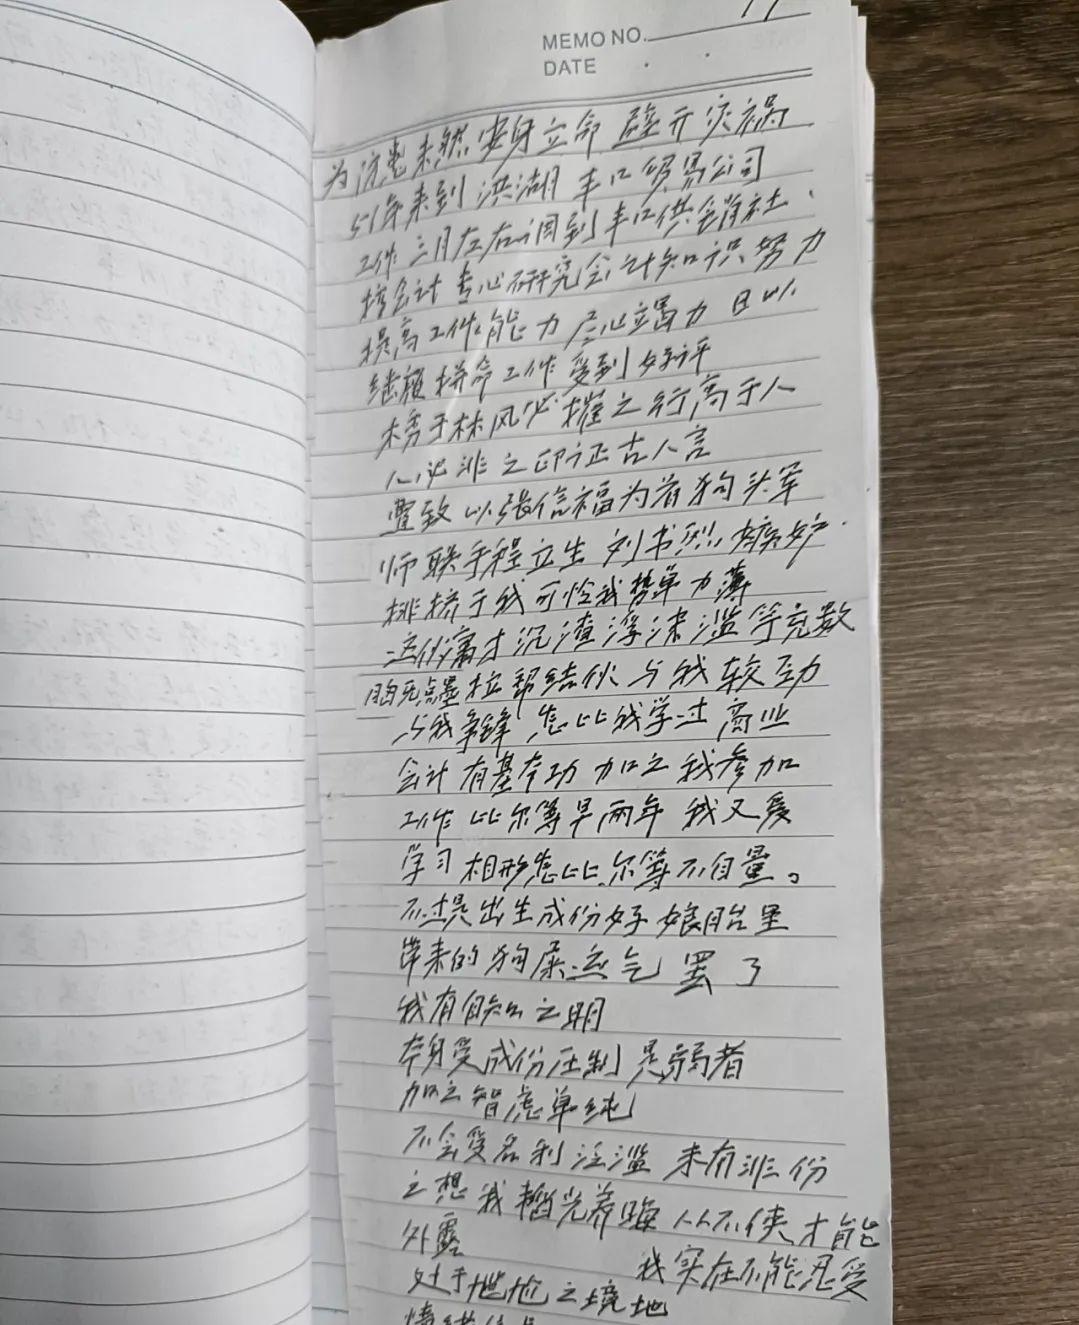 MEMO NO.
DATE
为防患未然安身立命 避开灾祸
51年来到洪湖 丰口贸易公司
工作三月左右调到丰口供销社.
搞会计 专心研究会计知识努力
提高工作能力 尽心竭力 日以
继夜拼命工作 受到好评
木秀于林风必摧之行高于人
人必非之印证古人言
竟致以张信福为首狗头军
师联手程立生 刘书烈 嫉妒.
排挤于我可怜我势单力薄
这伙庸才沉渣浮沫滥竽充数
胸无点墨拉帮结伙 与我较劲
与我争锋 怎比我学过商业
会计 有基本功 加之我参加
工作 比尔等早两年 我又爱
学习 相形怎比尔等不自量。
不过是出生成份好 娘胎里
带来的狗屎运气 罢了
我有自知之明
本身受成份压制 是弱者
加之智虑单纯
不会受名利泛滥 未有非份
之想 我韬光养晦 从不使才能
外露
我实在不能忍受
处于尴尬之境地
情绪